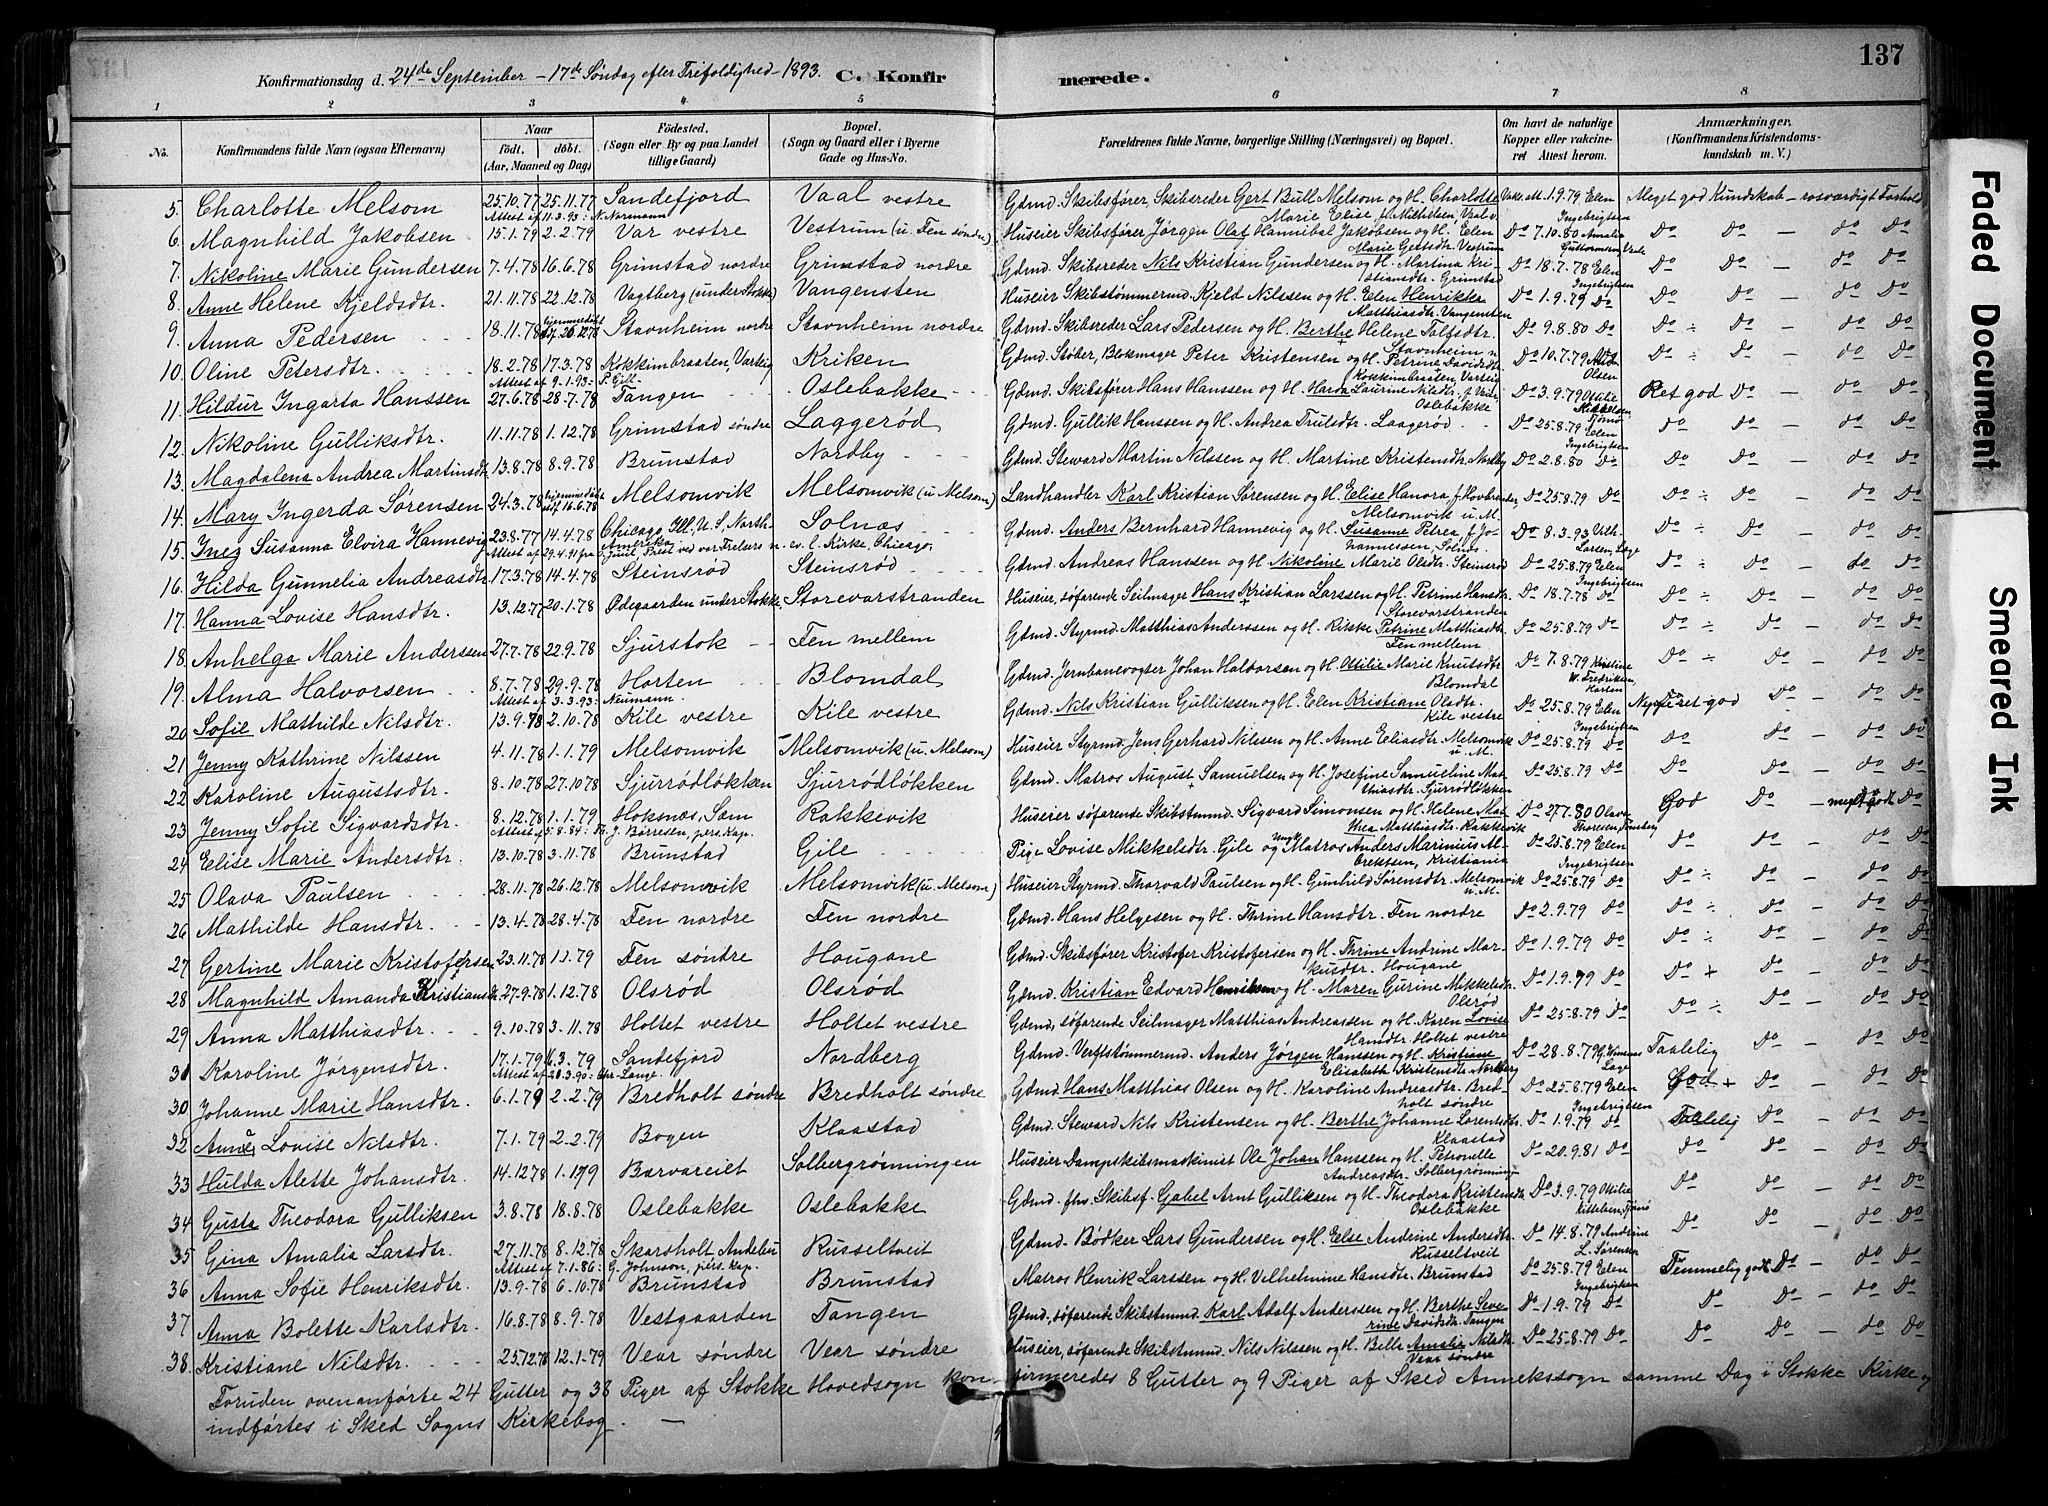 137
Konfirmationsdag d. 24de September – 17de Søndag efter Trefoldighed – 1893. C. Konfirmerede.
1 2 3 4 5 6 7 8
No. Konfirmandens fulde Navn (ogsaa Efternavn) Naar født. døbt. (Aar, Maaned og Dag) Fødested. (Sogn eller By og paa Landet tillige Gaard) Bopæl. (Sogn og Gaard eller i Byerne Gade og Hus-No. Forældrenes fulde Navne, borgerlige Stilling (Næringsvei) og Bopæl. Om havt de naturlige Kopper eller vakcineret Attest herom. Anmærkninger. (Konfirmandens Kristendomskundskab m. V.)
5. Charlotte Melsom 25.10.77 25.11.77 Sandefjord Vaal vestre Gdmd. Skibsfører, Skibsreder Gert Bull Melsom og H. Charlotte Marie Elise, f. Mathilsen, Vaal v. Vakc. att. 1.9.79 Elen Ingebrigtsen Meget god Kundskab – rosværdigt Forhold
Attest af 11.3.93: N. Normann
6. Magnhild Jakobsen 15.1.79 2.2.79 Var vestre Vestrum (u. Fen søndre) Huseier Skibsfører Jørgen Olaf Hannibal Jakobsen og H. Elen Marie Gettsdtr. Vestrum Do 7.10.80 Amalia Guttormsen Do Do – do Do
7. Nikoline Marie Gundersen 7.4.78 16.6.78 Grimstad nordre Grimstad nordre Gdmd. Skibsreder Nils Kristian Gundersen og H. Martina Kristiansdtr. Grimstad Do 18.7.78 Elen Ingebrigtsen Do Do – do Do
8. Anne Helene Kjeldsdtr. 21.11.78 22.12.78 Vagtberg (under Stokke) Vangensten Huseier Skibstømmermd. Kjeld Nilssen og H. Elen Henrikke Matthiasdtr. Vangensten Do 1.9.79 Do Do Do – do Do
9. Anna Pedersen 18.11.78 hjemmedøbt 26.12.78 Stavnheim nordre Stavnheim nordre Gdmd. Skibsreder Lars Pedersen og H. Berthe Helene Tolfsdtr. Stavnheim n. Do 9.8.80 Do Do ÷ Do – do Do
10. Oline Petersdtr. 18.2.78 17.3.78 Kokkimbraaten, Varteig Kriken Gdmd. Støber, Blokmager Peter Kristensen og H. Petrine Davidsdtr. Kokkimbraaten, Varteig Do 10.7.79 Olsen Do ÷ Do – do Do
Attest af 9.1.93: P. Gill
11. Hildur Ingarta Hanssen 27.6.78 28.7.78 Tangen Oslebakke Gdmd. Skibsfører Hans Hanssen og H. Maren Laurine Nilsdtr. Oslebakke Do 3.9.79 Ottilie Ret god Do – do Do
12. Nikoline Gulliksdtr. 11.11.78 1.12.78 Grimstad søndre Laggerød Gdmd. Gullik Hanssen og H. Andrea Trulsdtr. Laagerød Do 25.8.79 Elen Ingebrigtsen do Do – do Do
13. Magdalena Andrea Martinsdtr. 13.8.78 8.9.78 Brunstad Nordby Gdmd. Steward Martin Nilssen og H. Martine Kristensdtr. Nordby Do 2.8.80 Do Do Do – do Do
14. Mary Ingerda Sørensen 24.3.78 hjemmedøbt 16.6.78 Melsomvik Melsomvik (u. Melsom) Landhandler Karl Kristian Sørensen og H. Elise Hanora f. Hovbrender, Melsomvik u. M. Do 25.8.79 Do Do ÷ Do – do Do
15. Inez Susanna Elvira Hannevig 23.8.77 14.4.78 Chicago, Ill, U.S. North-Amerika Solnæs Gdmd. Anders Bernhard Hannevig og H. Susanne Petrea f. Johannessen, Solnæs. Do 8.3.93 Larsen, Læge Do ÷ Do – do Do
Attest af 29.4.91 fra Juul, Prest ved vor Frelsers n. ev. l. Kirke, Chicago.
16. Hilda Gunnelia Andreasdtr. 17.3.78 14.4.78 Steinsrød Steinsrød Gdmd. Andreas Hanssen og H. Nikoline Marie Olsdtr. Steinsrød Do 25.8.79 Elen Ingebrigtsen Do ÷ Do – do Do
17. Hanna Lovise Hansdtr. 13.12.77 20.1.78 Ødegaarden under Stokke Storevarstranden Huseier, søfarende Seilmager Hans Kristian Larssen og H. Petrine Hansdtr. Storevarstranden Do 18.7.78 Do Do ÷ Do – do Do
18. Anhelga Marie Anderssen 27.7.78 22.9.78 Sjurstok Fen mellem Gdmd. Styrmd. Matthias Anderssen og H. Rikke Petrine Matthiasdtr. Fen mellem Do 25.8.79 Do Do ÷ Do – do Do
19. Alma Halvorsen 8.7.78 29.9.78 Horten Blomdal Gdmd. Jernbanevogter Johan Halvorsen og H. Ottilie Marie Knutsdtr. Blomdal Do 7.8.79 Kristine W. Fredriksen, Horten Do ÷ Do – do Do
Attest af 3.3.93: Neumann.
20. Sofie Mathilde Nilsdtr. 13.9.78 2.10.78 Kile vestre Kile vestre Gdmd. Nils Kristian Gulliksen og H. Elen Kristiane Olsdtr. Kile vestre Do 25.8.79 Elen Ingebrigtsen ret god Do – do Do
21. Jenny Kathrine Nilssen 4.11.78 1.1.79 Melsomvik Melsomvik (u. Melsom) Huseier Styrmd. Jens Gerhard Nilssen og H. Anne Eliasdtr. Melsomvik u. M. Do 25.8.79 Do Do Do – do Do
22. Karoline Augustsdtr. 8.10.78 27.10.78 Sjurrødløkken Sjurrødløkken Gdmd. Matros August Samuelsen og H. Josefine Samueline Matthiasdtr. Sjurrødløkken Do 25.8.79 Do Do Do – do Do
23. Jenny Sofie Sigvardsdtr. 8.12.78 1.1.79 Hoksnæs, Sem Rakkevik Huseier søfarende Skibstmmd. Sigvard Simonsen og H. Helene Mathea Matthiasdtr. Rakkevik Do 27.7.80 Olava Thoresen, Tønsberg God Do – meget god Do
Attest af 5.8.84: J. Børresen, pers. Kap.
24. Elise Marie Andersdtr. 13.10.78 3.11.78 Brunstad Gile Pige Lovise Mikkelsdtr. Gile og Ungk. Matros Anders Marinius M. Brektsen, Kristiania Do 25.8.79 Elen Ingebrigtsen Do Do – do Do
25. Olava Paulsen 28.11.78 26.12.78 Melsomvik Melsomvik (u. Melsom) Huseier Styrmd. Thorvald Paulsen og H. Gunhild Sørensdtr. Melsomvik u. M. Do 25.8.79 Do Do ÷ Do – do Do
26. Mathilde Hansdtr. 13.4.78 28.4.78 Fen nordre Fen nordre Gdmd. Hans Helgesen og H. Thrine Hansdtr. Fen nordre Do 2.9.79 Do Do ÷ Do – do Do
27. Gertine Marie Kristofersen 23.11.78 1.1.79 Fen søndre Hougane Gdmd. Skibsfører Kristofer Kristofersen og H. Thrine Andrine Markusdtr. Hougane Do 1.9.79 Do Do ÷ Do – do Do
28. Magnhild Amanda Kristiansdtr. 27.9.78 1.12.78 Olsrød Olsrød Gdmd. Kristian Edvard Henriksen og H. Maren Gurine Mikkelsdtr. Olsrød Do 1.9.79 Do Do + Do – do Do
29. Anna Matthiasdtr. 9.10.78 3.11.78 Holtet vestre Holtet vestre Gdmd, søfarende Seilmager Matthias Andreassen og H. Karen Lovise Hansdtr. Holtet vestre Do 25.8.79 Do Do ÷ Do – do Do
30 Karoline Jørgensdtr. 17.1.79 6.3.79 Sandefjord Nordberg Gdmd. Verftstømmermd. Anders Jørgen Hanssen og H. Kristiane Elisabeth Kristensdtr. Nordberg Do 28.8.79 Læge Taalelig Do – do Do
Attest af 20.3.90: Chr. Lange.
30 Johanne Marie Hansdtr. 6.1.79 2.2.79 Bredholt søndre Bredholt søndre Gdmd. Hans Matthias Olsen og H. Karoline Andreasdtr. Bredholt søndre Do 25.8.79 Elen Ingebrigtsen God + Do – do Do
32 Anna Lovise Nilsdtr. 7.1.79 2.2.79 Bogen Klaastad Gdmd. Steward Nils Kristensen og H. Berthe Johanne Lorentsdtr. Klaastad Do 1.9.79 Do Taalelig Do – do Do
33. Hulda Alette Johansdtr. 14.12.78 1.1.79 Barvareiet Solbergrønningen Huseier Dampskibsmaskinist Ole Johan Hanssen og H. Petronelle Andreasdtr. Solbergrønningen Do 20.9.81 Do Do Do – do Do
34. Gusta Theodora Gulliksen 3.8.78 18.8.78 Oslebakke Oslebakke Gdmd. fhv. Skibsf. Gabel Arnt Gulliksen og H. Theodora Kristensdtr. Oslebakke Do 3.9.79 Ottilie Kittelsen, Tjømø Do Do – do Do
35. Gina Amalia Larsdtr. 27.11.78 8.12.78 Skarsholt Andebu Russeltveit Gdmd. Bødker Lars Gundersen og H. Else Andrine Andersdtr. Russeltveit Do 14.8.79 Andrine L. Sørensen Do Do – do Do
Attest af 7.1.86: G. Johnson, pers. Kap.
36. Anna Sofie Henriksdtr. 13.9.78 6.10.78 Brunstad Brunstad Matros Henrik Larssen og H. Vilhelmine Hansdtr. Brunstad Do 25.8.79 Elen Ingebrigtsen Temmelig god Do – do Do
37. Anna Bolette Karlsdtr. 16.8.78 8.9.78 Vestgaarden Tangen Gdmd., søfarende Skibstmmd. Karl Adolf Anderssen og H. Berthe Severine Davidsdtr. Tangen Do 1.9.79 Do Do Do – do Do
38. Kristiane Nilsdtr. 25.12.78 12.1.79 Vear søndre Vear søndre Huseier, søfarende Skibstmmd. Nils Nilssen og H. Belle Amalie Nilsdtr. Vear søndre Do 25.8.79 Do Do Do – do Do
Foruden ovenanførte 24 Gutter og 38 Piger af Stokke Hovedsogn konfirmeredes 8 Gutter og 9 Piger af Sked Annekssogn samme Dag i Stokke Kirke og
indførtes i Sked Sogns Kirkebog. –
Faded Document
Smeared Ink